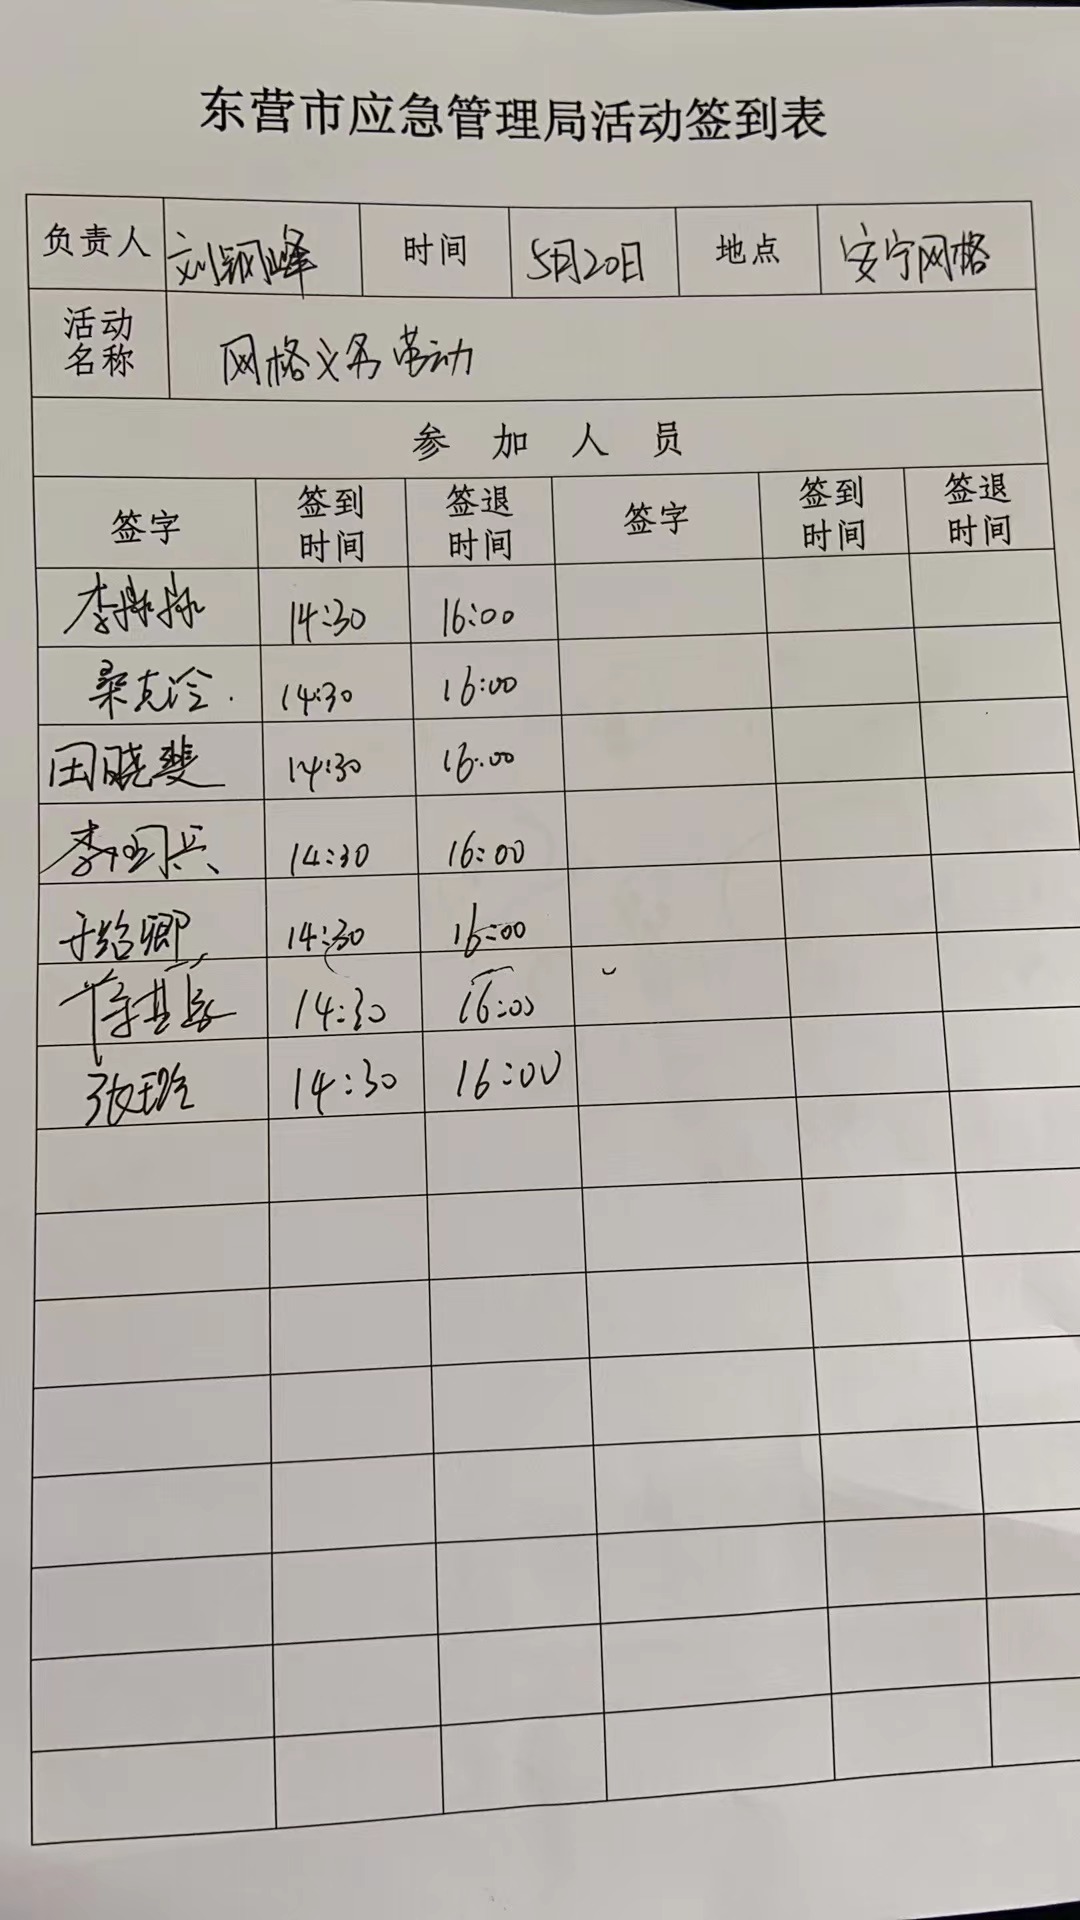 东营市应急管理局活动签到表
负责人 刘钢峰 时间 5月20日 地点 安宁网格
活动名称 网格义务劳动
参加人员
签字 签到时间 签退时间 签字 签到时间 签退时间
14:30 16:00
桑克冷 14:30 16:00
田晓斐 14:30 16:00
李国兵 14:30 16:00
于绍卿 14:30 16:00
14:30 16:00
张玲 14:30 16:00